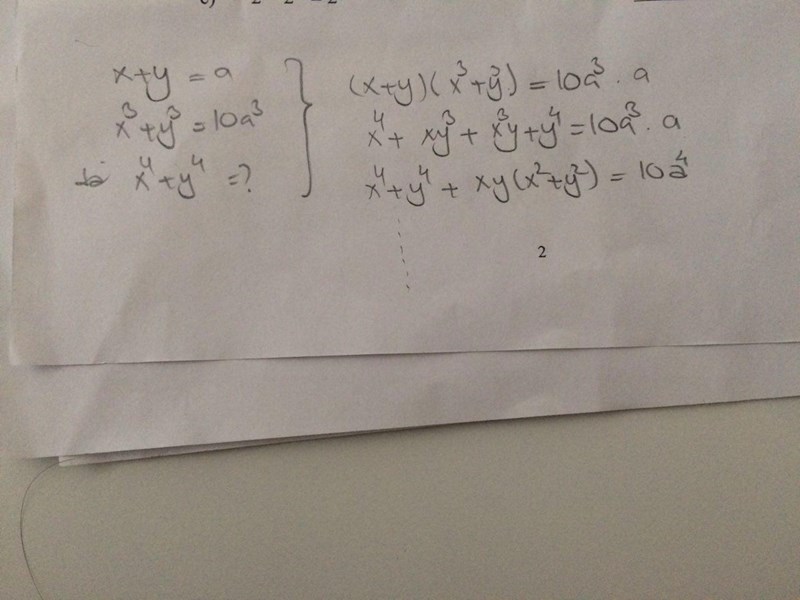 x+y = a
x³+y³ = 10a³
x⁴+y⁴ =?
(x+y)(x³+y³) = 10a³ · a
x⁴ + xy³ + x³y + y⁴ = 10a³ · a
x⁴+y⁴ + xy(x²+y²) = 10a⁴
2